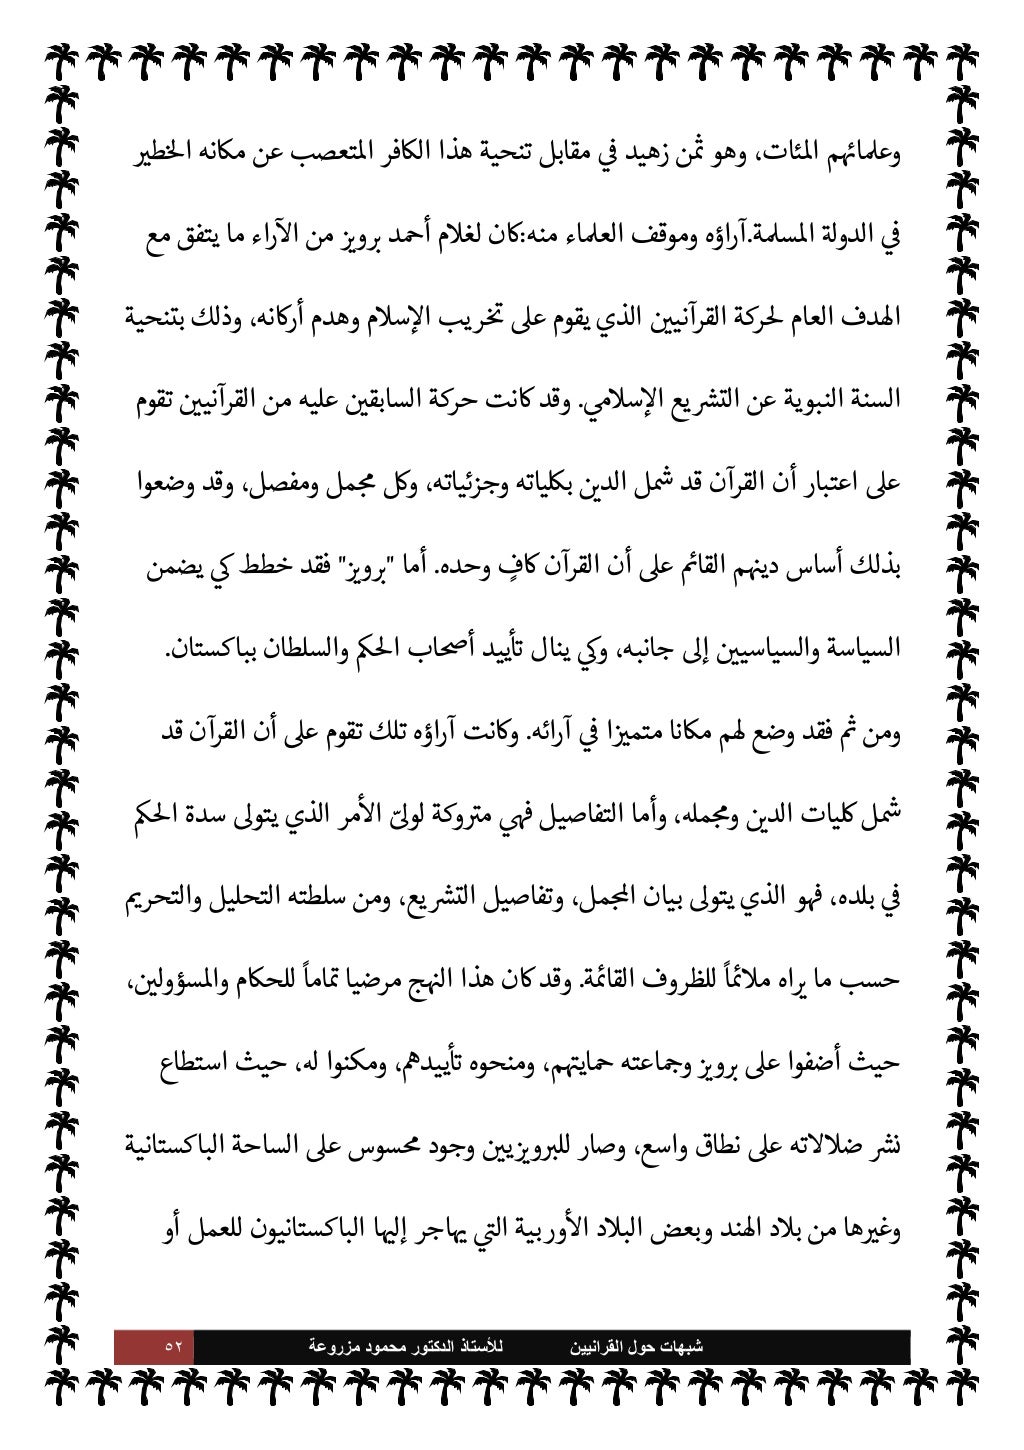 وعلمائهم المئات، وهو ثمن زهيد في مقابل تنحية هذا الكافر المتعصب عن مكانه الخطير
في الدولة المسلمة.آراؤه وموقف العلماء منه:كان لغلام أحمد برويز من الآراء ما يتفق مع
الهدف العام لحركة القرآنيين الذي يقوم على تخريب الإسلام وهدم أركانه، وذلك بتنحية
السنة النبوية عن التشريع الإسلامي. وقد كانت حركة السابقين عليه من القرآنيين تقوم
على اعتبار أن القرآن قد شمل الدين بكلياته وجزئياته، وكل مجمل ومفصل، وقد وضعوا
بذلك أساس دينهم القائم على أن القرآن كافٍ وحده. أما "برويز" فقد خطط كي يضمن
السياسة والسياسيين إلى جانبه، وكي ينال تأييد أصحاب الحكم والسلطان بباكستان.
ومن ثم فقد وضع لهم مكانا متميزا في آرائه. وكانت آراؤه تلك تقوم على أن القرآن قد
شمل كليات الدين ومجمله، وأما التفاصيل فهي متروكة لوليّ الأمر الذي يتولى سدة الحكم
في بلده، فهو الذي يتولى بيان المجمل، وتفاصيل التشريع، ومن سلطته التحليل والتحريم
حسب ما يراه ملائماً للظروف القائمة. وقد كان هذا النهج مرضيا تماماً للحكام والمسؤولين،
حيث أضفوا على برويز وجماعته حمايتهم، ومنحوه تأييدهم، ومكنوا له، حيث استطاع
نشر ضلالاته على نطاق واسع، وصار للبرويزيين وجود محسوس على الساحة الباكستانية
وغيرها من بلاد الهند وبعض البلاد الأوربية التي يهاجر إليها الباكستانيون للعمل أو
شبهات حول القرانيين للأستاذ الدكتور محمود مزروعة ٥٢